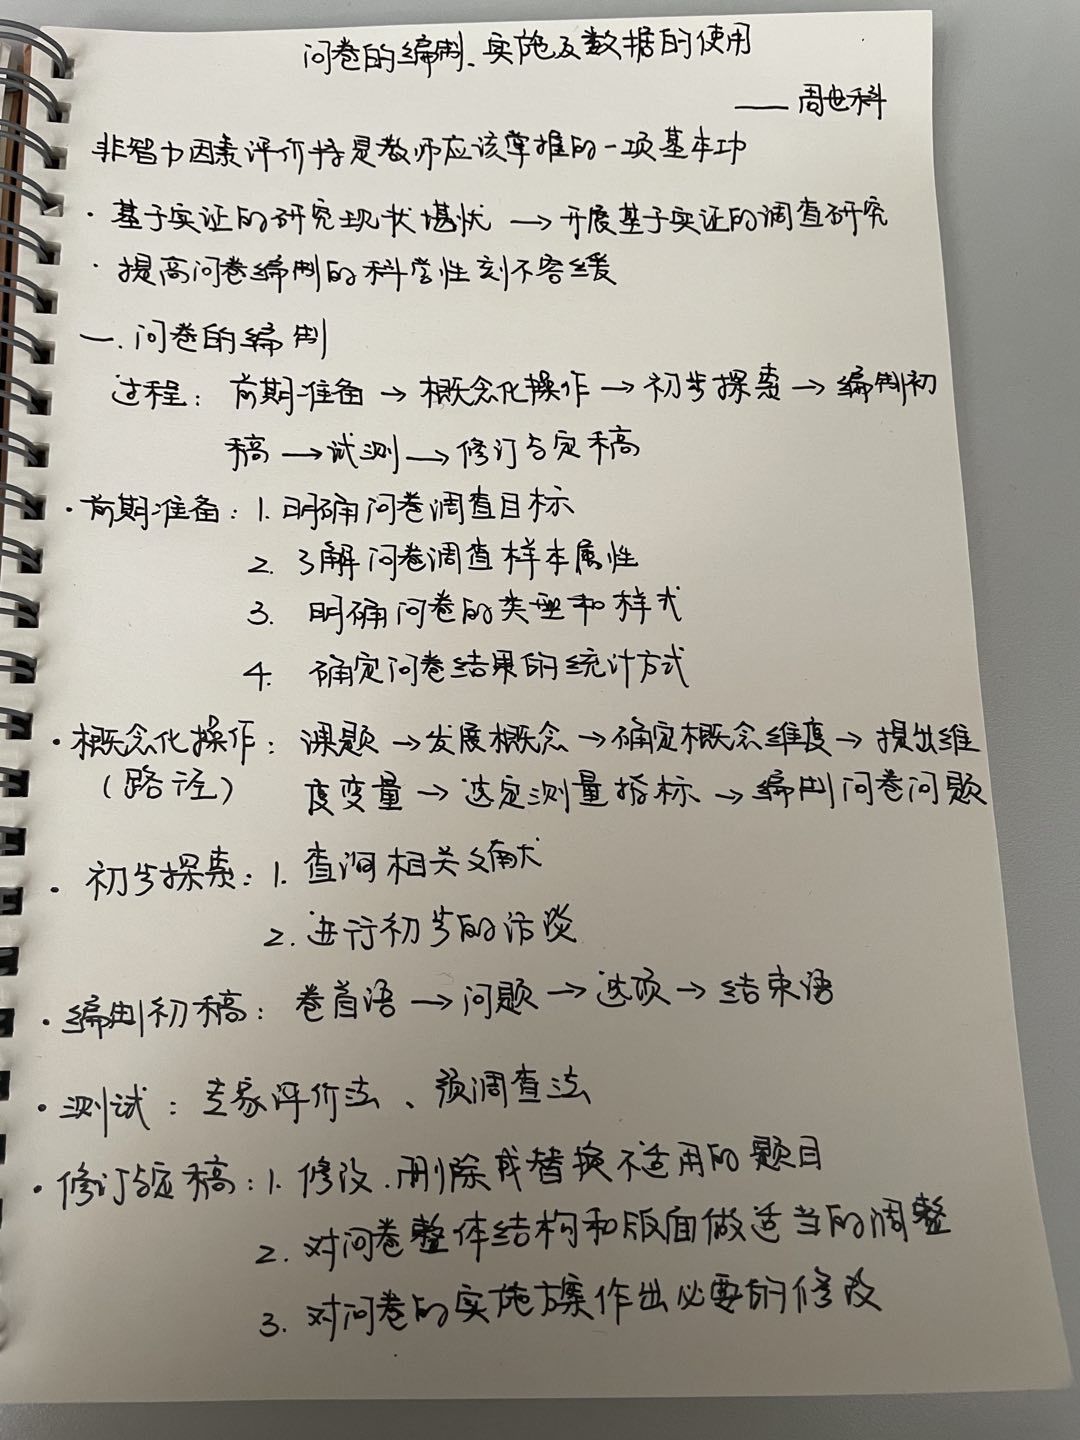 问卷的编制、实施及数据的使用
—— 周世科
非智力因素评价将是教师应该掌握的一项基本功
· 基于实证的研究现状堪忧 → 开展基于实证的调查研究
· 提高问卷编制的科学性刻不容缓
一. 问卷的编制
过程: 前期准备 → 概念化操作 → 初步探索 → 编制初
稿 → 试测 → 修订与定稿
· 前期准备: 1. 明确问卷调查目标
2. 了解问卷调查样本属性
3. 明确问卷的类型和样式
4. 确定问卷结果的统计方式
· 概念化操作: 课题 → 发展概念 → 确定概念维度 → 提出维
(路径) 度变量 → 选定测量指标 → 编制问卷问题
· 初步探索: 1. 查询相关文献
2. 进行初步的访谈
· 编制初稿: 卷首语 → 问题 → 选项 → 结束语
· 测试: 专家评价法、预调查法
· 修订与定稿: 1. 修改、删除或替换不适用的题目
2. 对问卷整体结构和版面做适当的调整
3. 对问卷的实施方案作出必要的修改